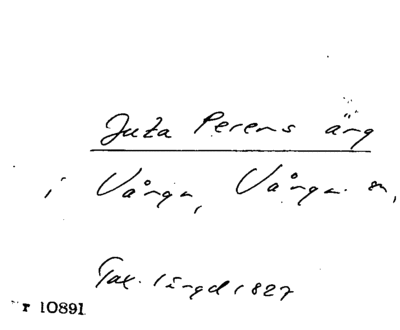 Juta Perers äng
i Vånga, Vånga sn,
Tax. längd 1827
r 10891